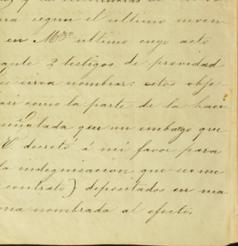 segun el ultimo inven
en M.zo ultimo cuyo acto
ante 2 testigos de providad
se sirva nombrar: estos obje
asi como la parte de la haci
señalada que un embargo que
V. decretó á mi favor para
la indegnisacion que se me
contrato) depositados en ma
ona nombrada al efecto.